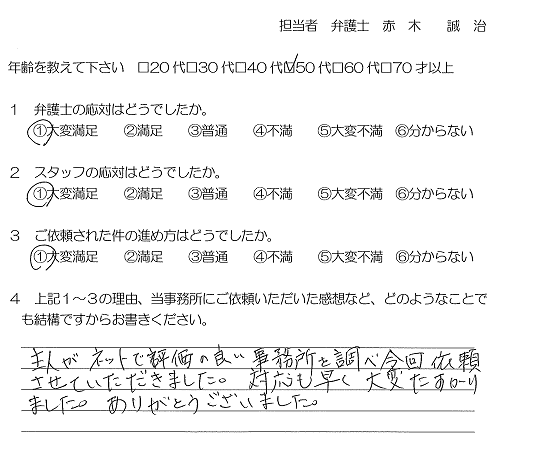 担当者　弁護士　赤　木　　誠　治
年齢を教えて下さい　□20代□30代□40代☑50代□60代□70才以上
１　弁護士の応対はどうでしたか。
①大変満足　②満足　③普通　④不満　⑤大変不満　⑥分からない
２　スタッフの応対はどうでしたか。
①大変満足　②満足　③普通　④不満　⑤大変不満　⑥分からない
３　ご依頼された件の進め方はどうでしたか。
①大変満足　②満足　③普通　④不満　⑤大変不満　⑥分からない
４　上記１～３の理由、当事務所にご依頼いただいた感想など、どのようなことで
も結構ですからお書きください。
主人がネットで評価の良い事務所を調べ今回依頼
させていただきました。対応も早く大変たすかり
ました。ありがとうございました。